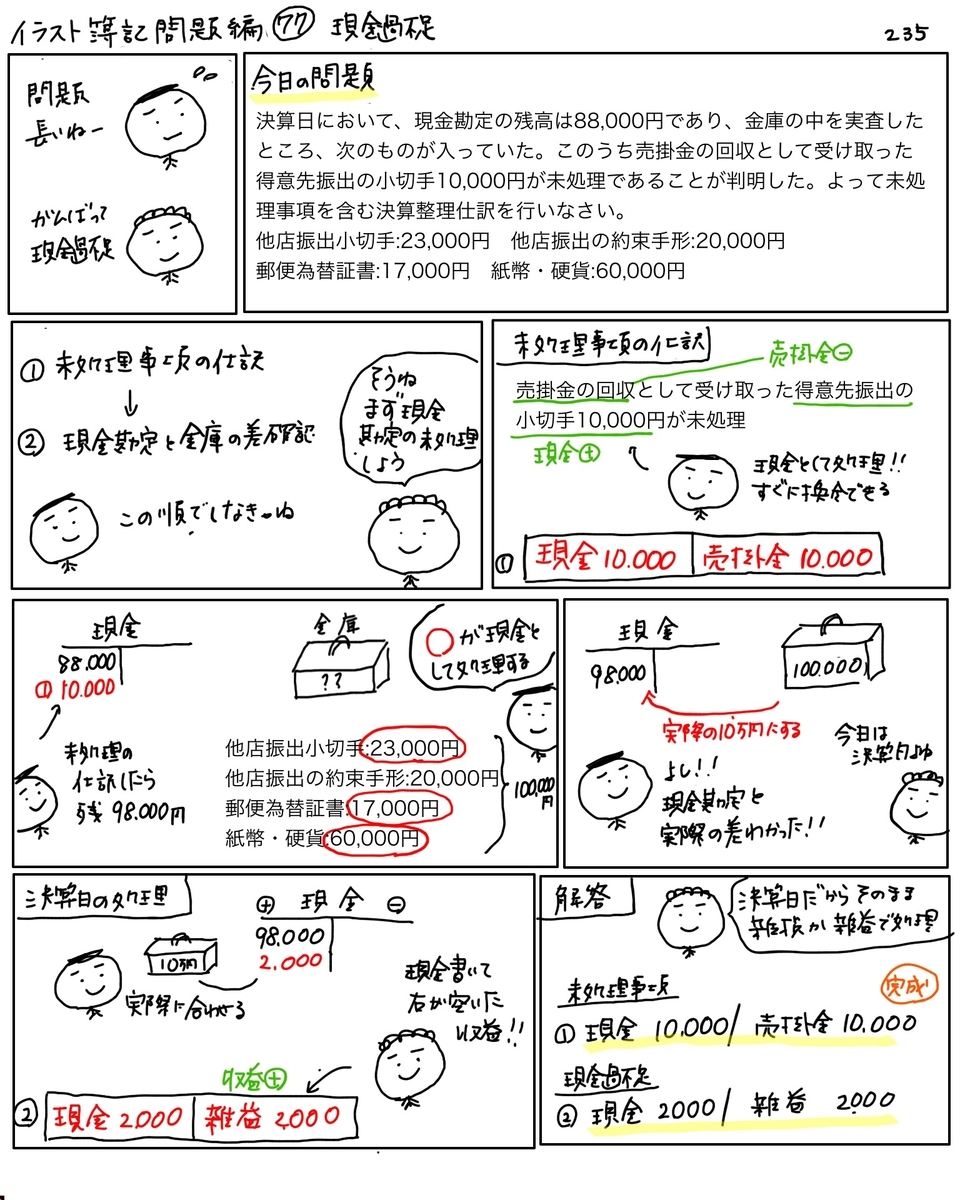 イラスト簿記問題編 77 現金過不足
235
問題
長いねー
がんばって
現金過不足
今日の問題
決算日において、現金勘定の残高は88,000円であり、金庫の中を実査した
ところ、次のものが入っていた。このうち売掛金の回収として受け取った
得意先振出の小切手10,000円が未処理であることが判明した。よって未処
理事項を含む決算整理仕訳を行いなさい。
他店振出小切手:23,000円　他店振出の約束手形:20,000円
郵便為替証書:17,000円　紙幣・硬貨:60,000円
① 未処理事項の仕訳
↓
② 現金勘定と金庫の差確認
この順でしなきゃね
そうね
まず現金
勘定の未処理
しよう
未処理事項の仕訳
売掛金⊖
売掛金の回収として受け取った得意先振出の
小切手10,000円が未処理
現金⊕
現金として処理!!
すぐに換金できる
① 現金 10.000 売掛金 10.000
現金
88.000
① 10.000
金庫
??
○が現金と
して処理する
未処理の
仕訳したら
残 98.000円
他店振出小切手:23,000円
他店振出の約束手形:20,000円
郵便為替証書:17,000円
紙幣・硬貨:60,000円
100,000円
現金
98.000
100.000
実際の10万円にする
よし!!
現金勘定と
実際の差わかった!!
今日は
決算日よね
決算日の処理
⊕ 現金 ⊖
98.000
2.000
10万円
実際に合わせる
現金書いて
右が空いた
収益!!
収益⊕
② 現金 2.000 雑益 2.000
解答
決算日だからそのまま
雑損か雑益で処理
完成!
未処理事項
① 現金 10,000/ 売掛金 10,000
現金過不足
② 現金 2000/ 雑益 2000